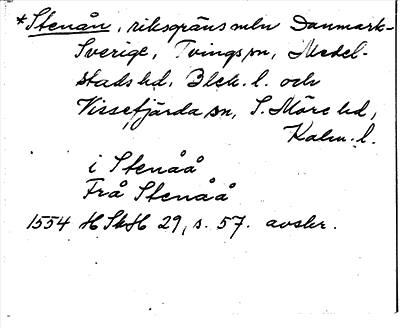 *Stenån, riksgräns mln Danmark-
Sverige, Tvings sn, Medel-
stads hd, Blek. l. och
Vissefjärda sn, S. Möre hd,
Kalm. l.
i Stenåå
Frå Stenåå
1554 H Sk H 29, s. 57. avskr.